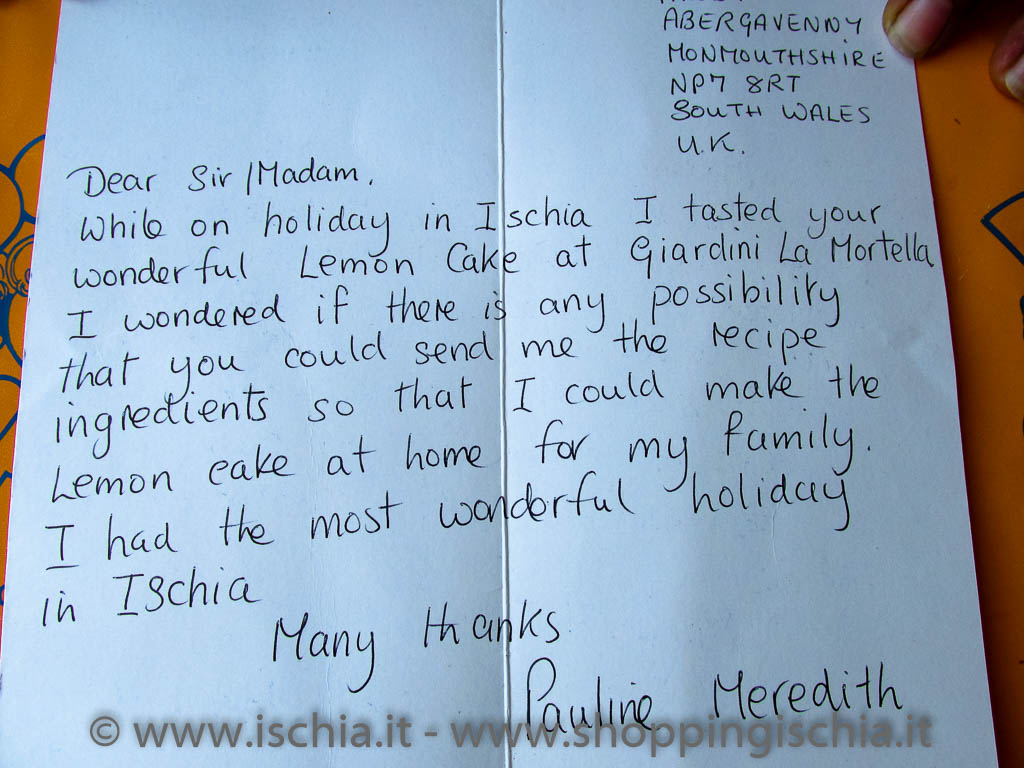 ABERGAVENNY
MONMOUTHSHIRE
NP7 8RT
SOUTH WALES
U.K.
Dear Sir/Madam,
While on holiday in Ischia I tasted your
wonderful Lemon Cake at Giardini La Mortella
I wondered if there is any possibility
that you could send me the recipe
ingredients so that I could make the
Lemon cake at home for my family.
I had the most wonderful holiday
in Ischia
Many thanks
Pauline Meredith
© www.ischia.it - www.shoppingischia.it